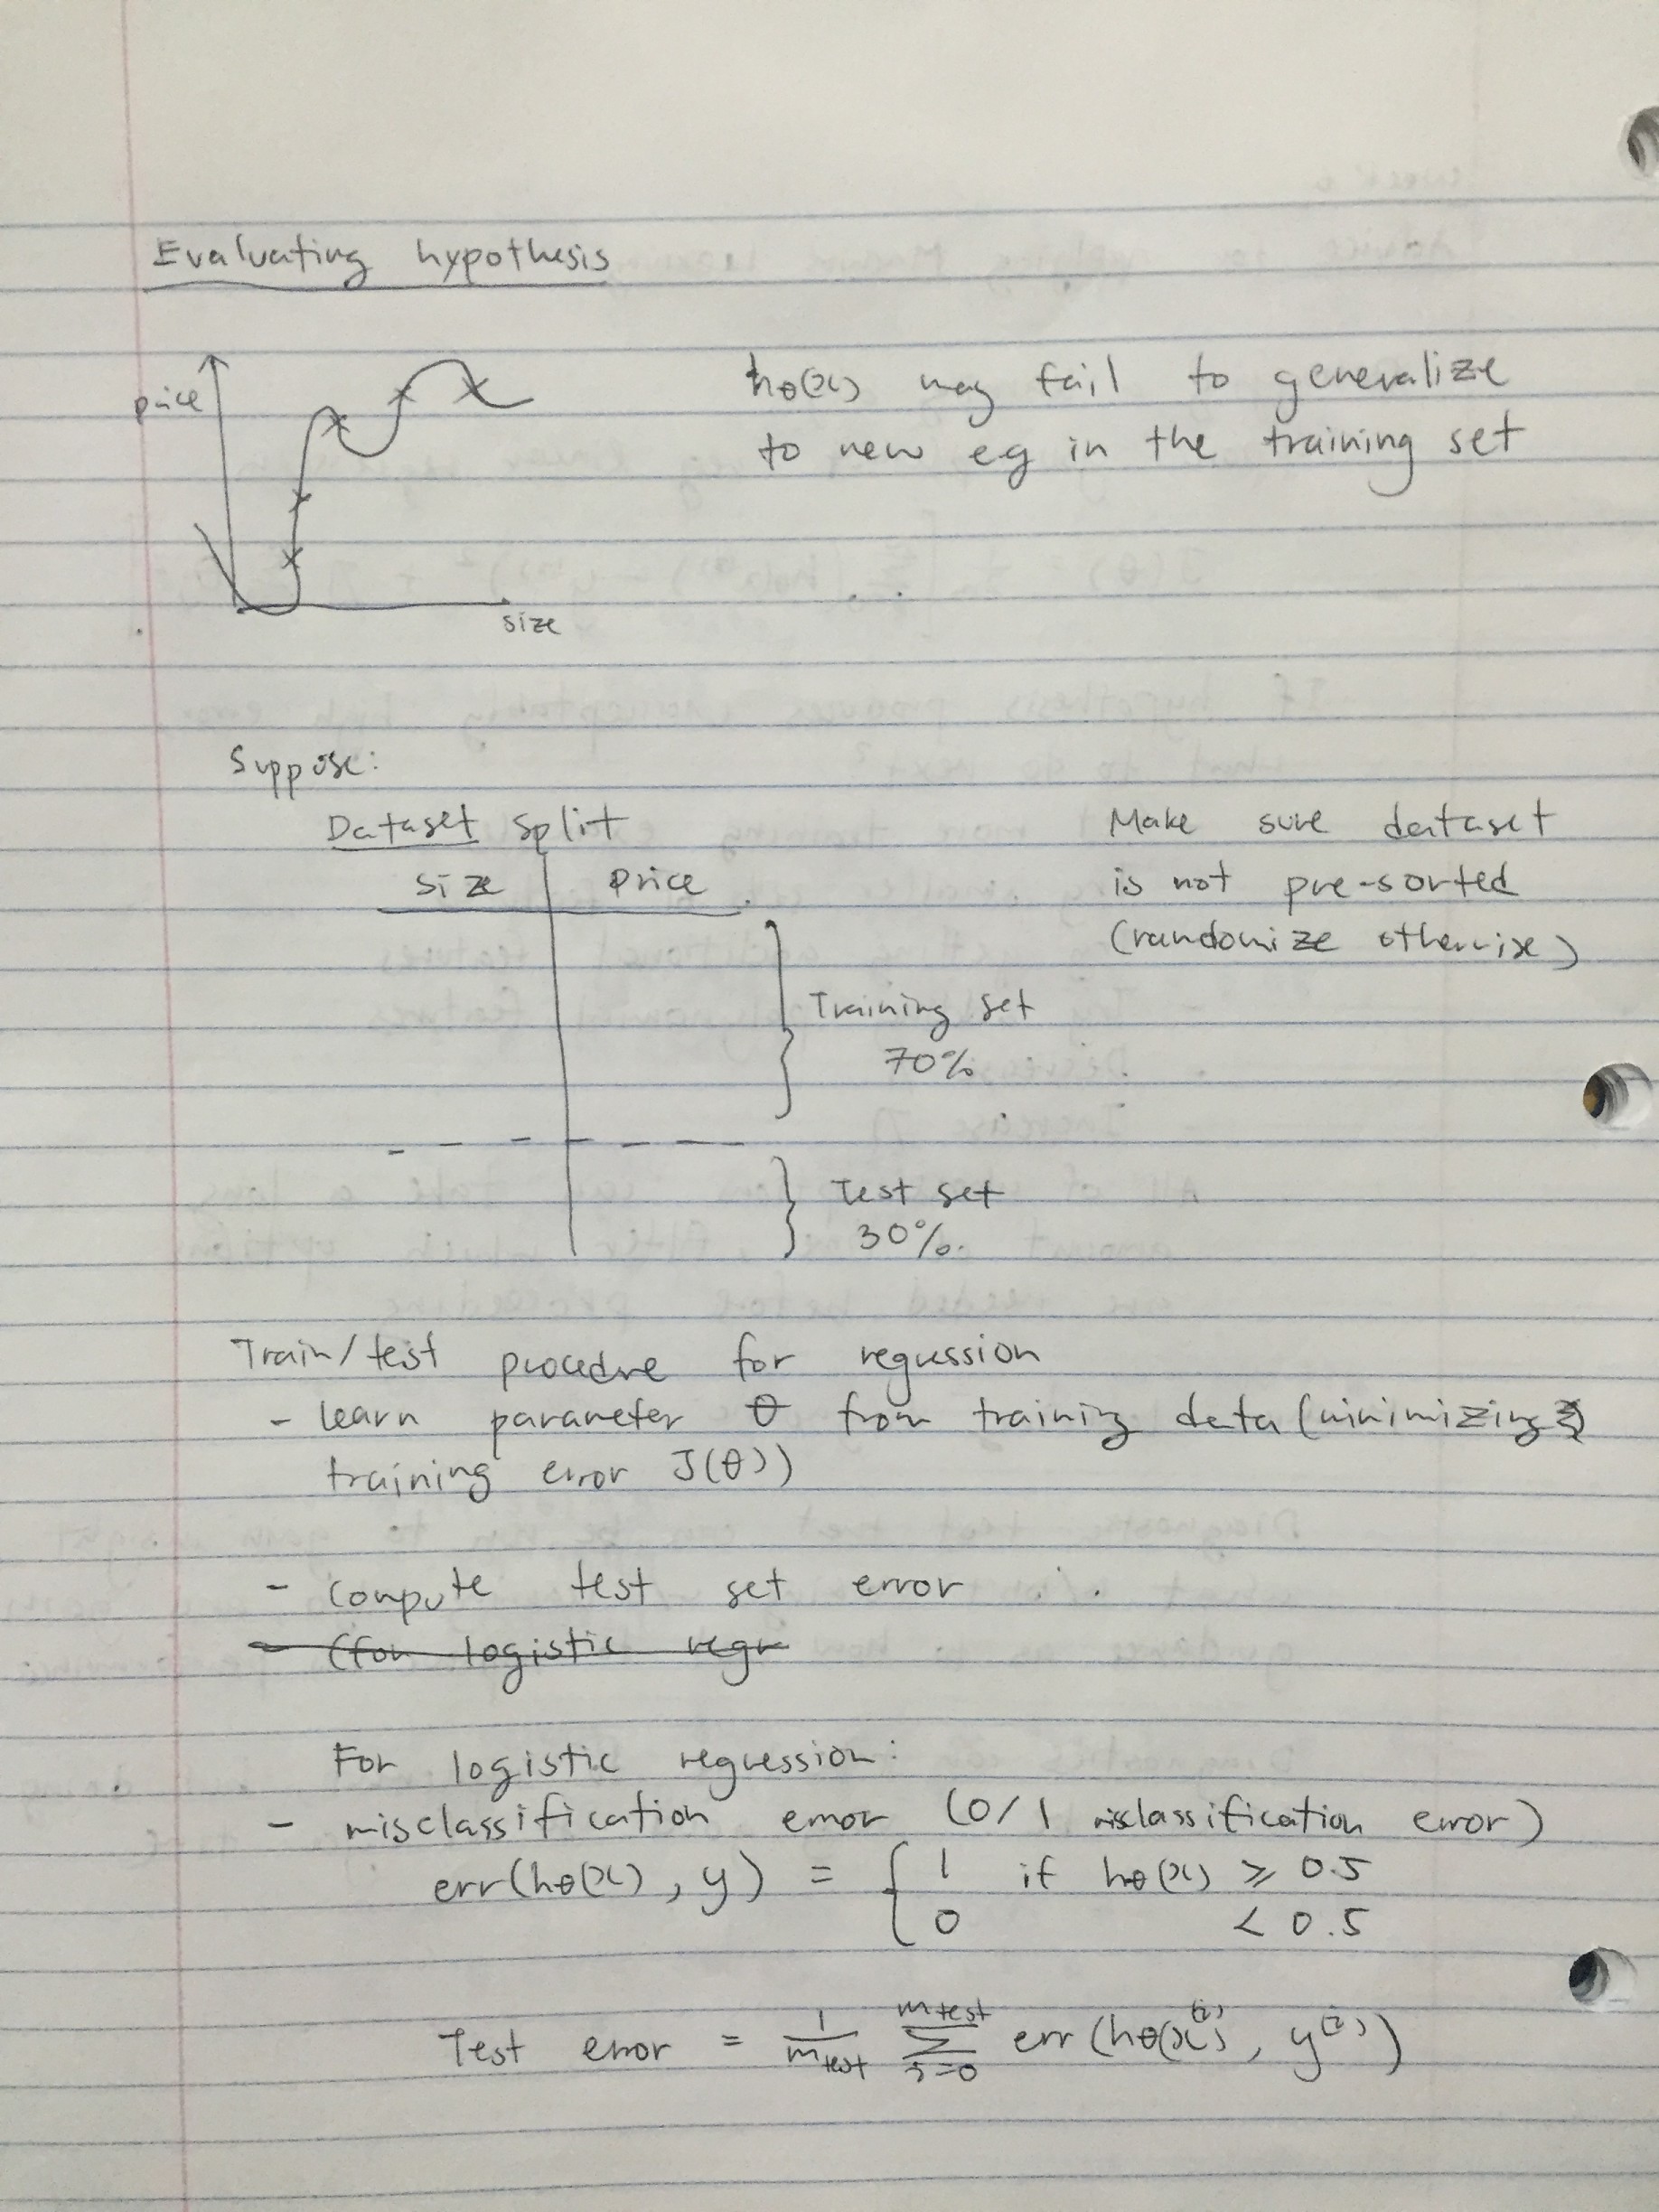 Evaluating hypothesis
price
size
hθ(x) may fail to generalize
to new eg in the training set
Suppose:
Dataset split
size price
Make sure dataset
is not pre-sorted
(randomize otherwise)
Training set
70%
Test set
30%.
Train/test procedure for regression
- learn parameter θ from training data (minimizing
training error J(θ))
- compute test set error
- (for logistic regr
For logistic regression:
- misclassification error (0/1 misclassification error)
err(hθ(x), y) = { 1 if hθ(x) ≥ 0.5
0 < 0.5
Test error = 1/m_test Σ_{i=0}^{m_test} err(hθ(x^(i)), y^(i))